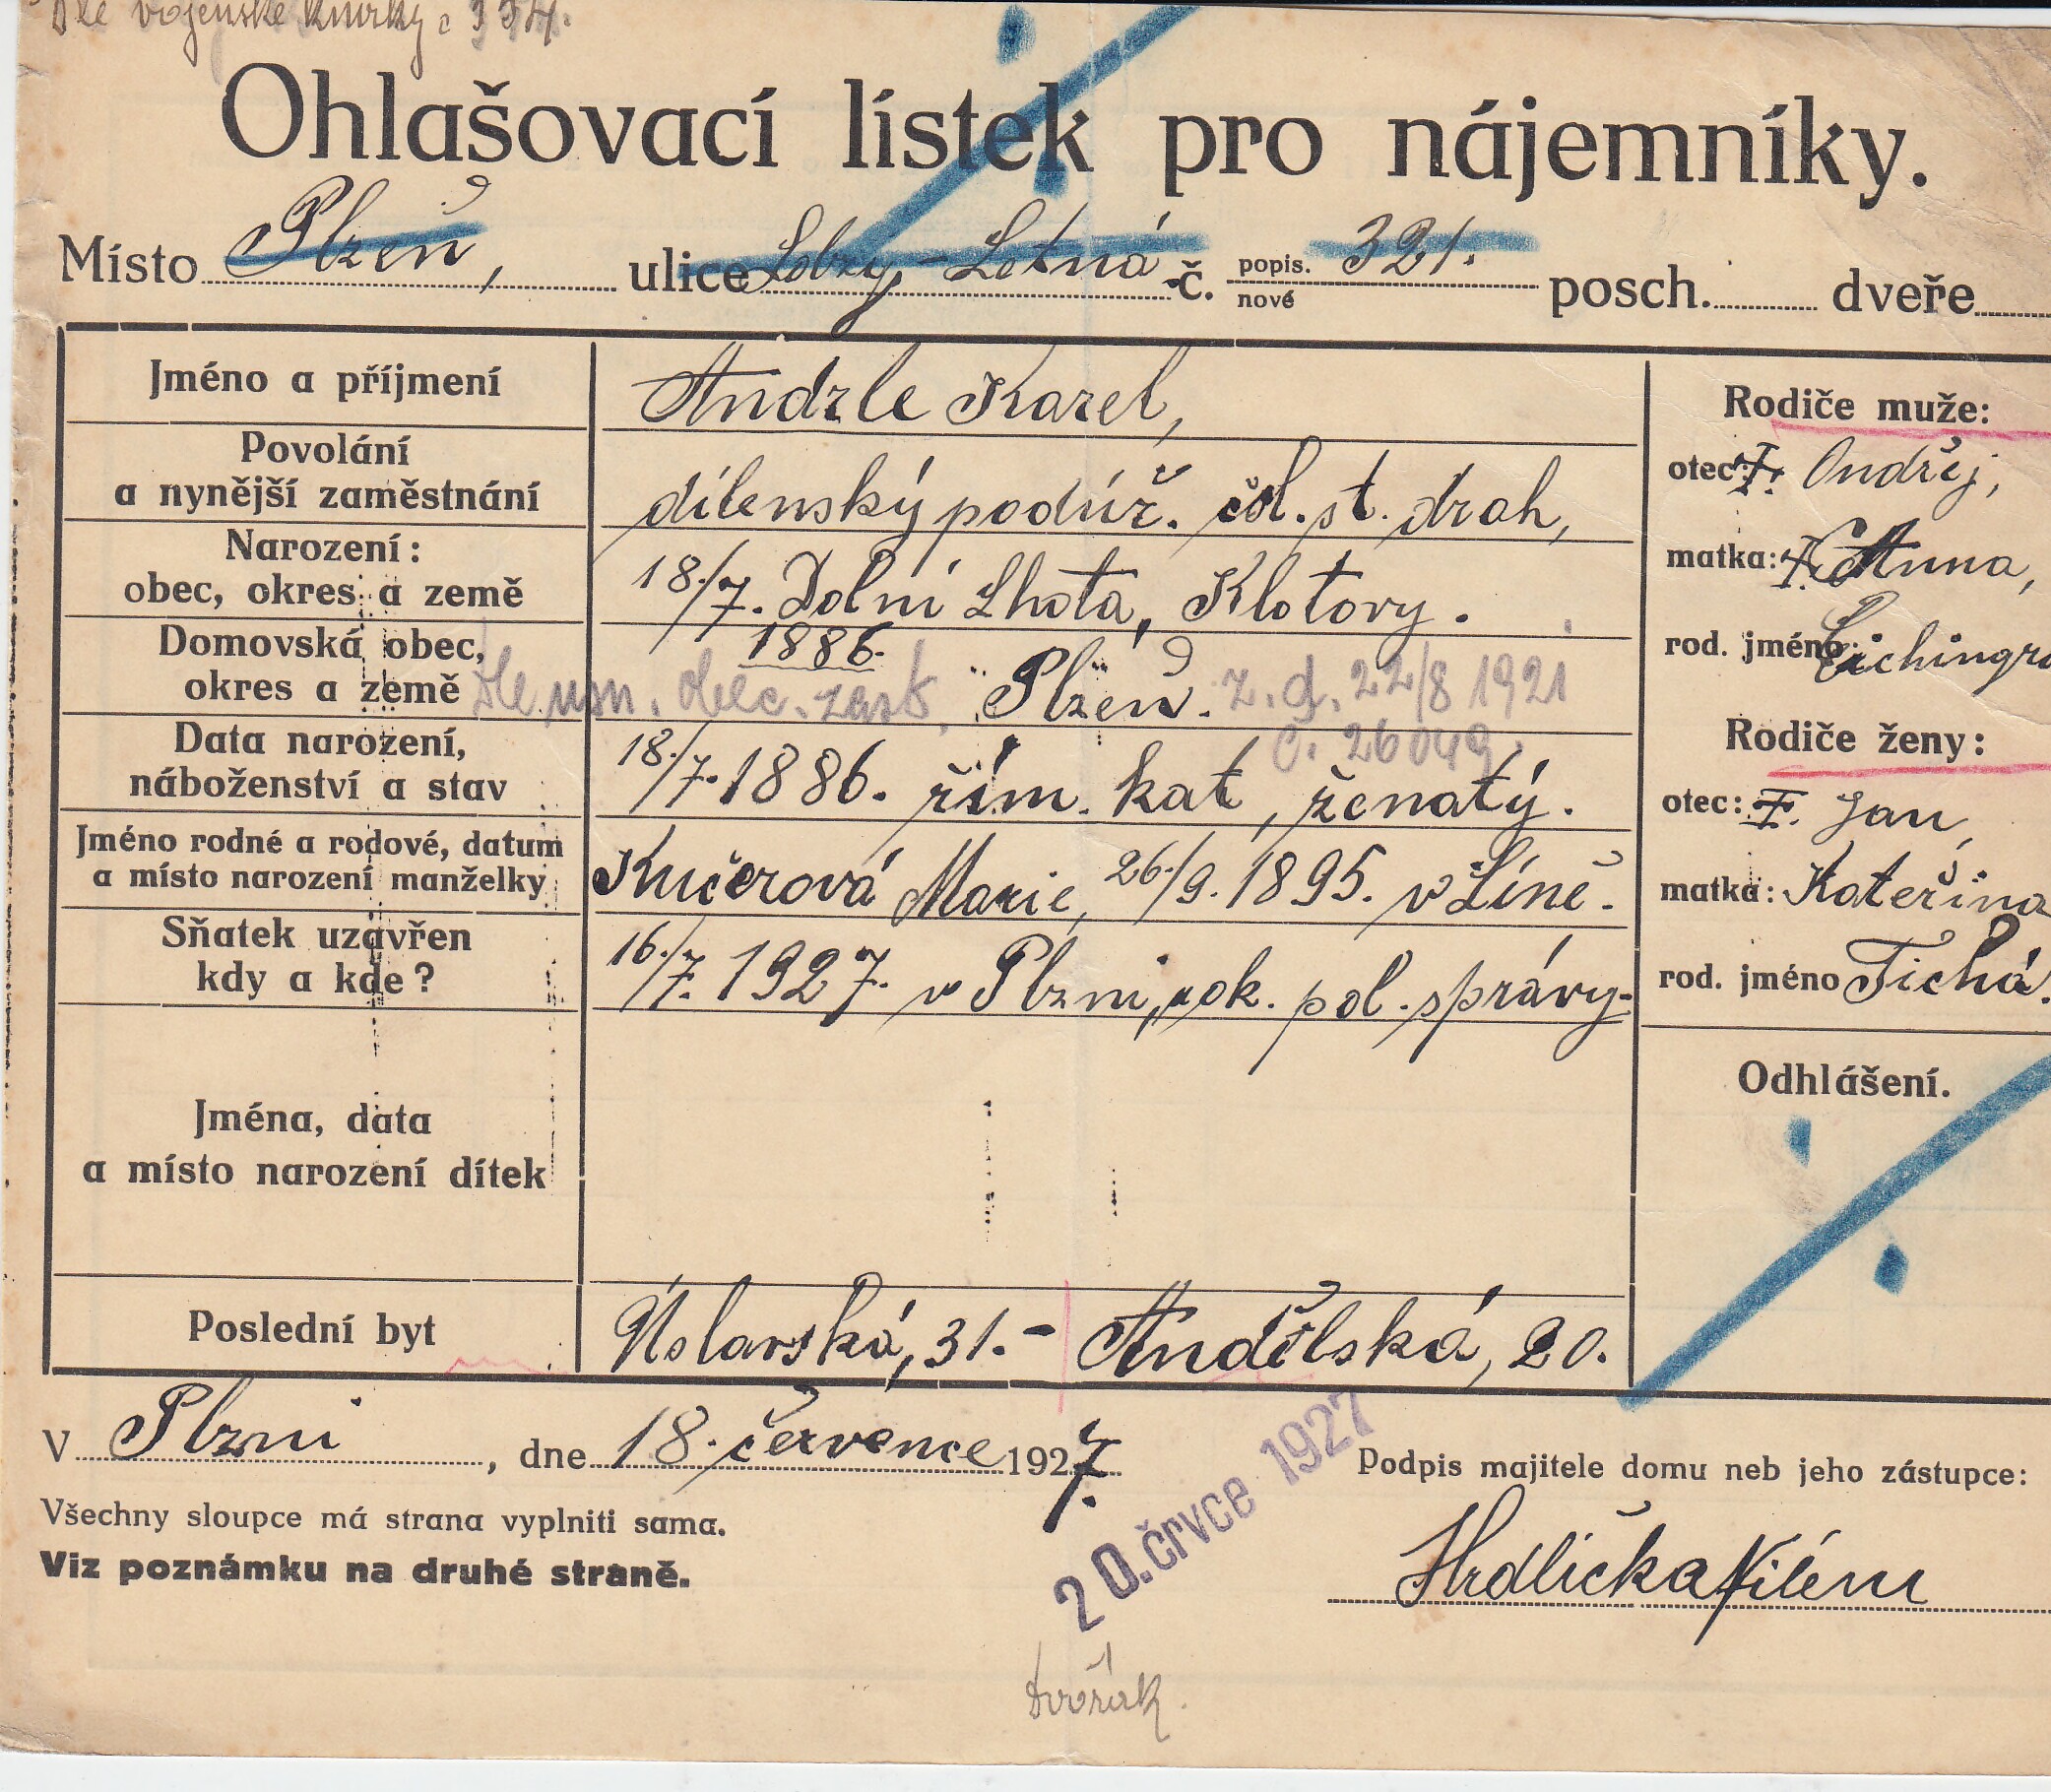 Dle vojenské knížky č 334.
Ohlašovací lístek pro nájemníky.
Místo Plzeň, ulice Lobzy - Letná č. popis. 321. posch. dveře
nové
Jméno a příjmení Andrle Karel,
Povolání
a nynější zaměstnání dílenský podúř. čsl. st. drah,
Narození:
obec, okres a země 18./7. Dolní Lhota, Klatovy.
1886.
Domovská obec,
okres a země Dle usn. obec. zast. Plzeň. z. d. 22/8 1921
č. 26049.
Data narození,
náboženství a stav 18./7. 1886. řím. kat, ženatý.
Jméno rodné a rodové, datum
a místo narození manželky Kučerová Marie, 26./9. 1895. v Líně.
Sňatek uzavřen
kdy a kde? 16./7. 1927. v Plzni, u ok. pol. správy.
Jména, data
a místo narození dítek
Poslední byt Úslavská, 31. - Andělská, 20.
Rodiče muže:
otec: Ondřej,
matka: Anna,
rod. jméno:
Rodiče ženy:
otec: Jan,
matka: Kateřina
rod. jméno Tichá.
Odhlášení.
V Plzni, dne 18. července 1927.
20. črvce 1927
Všechny sloupce má strana vyplniti sama.
Viz poznámku na druhé straně.
Podpis majitele domu neb jeho zástupce:
Hrdlička Vilém
Dvořák.